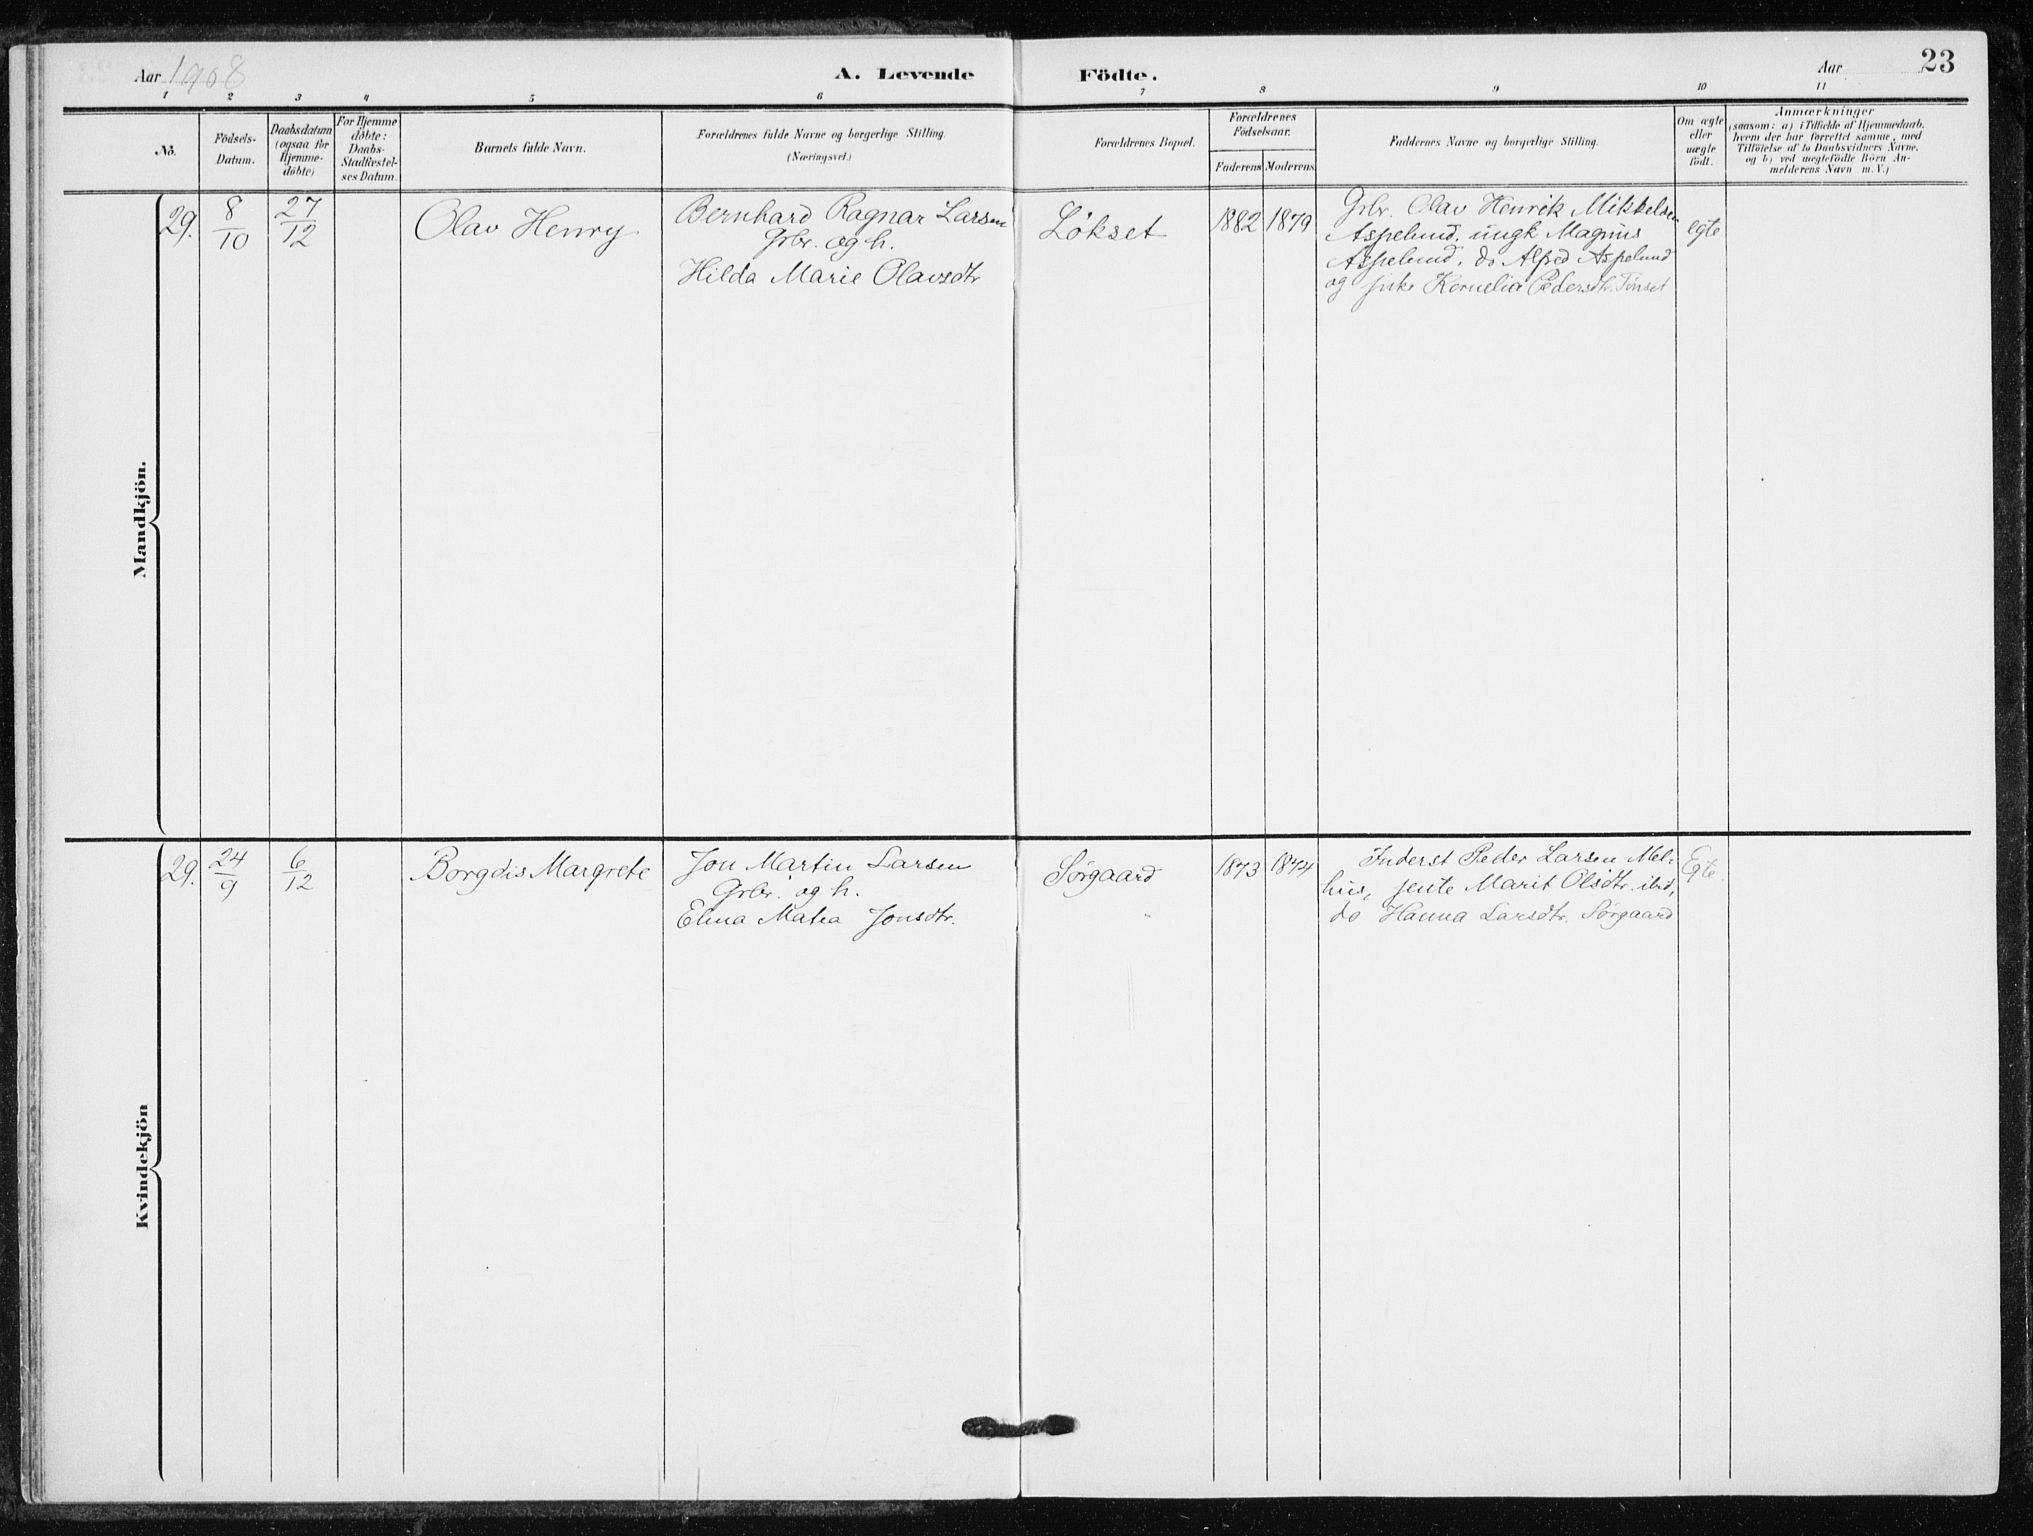 Aar 1908 A. Levende Födte. Aar 23
1 2 3 4 5 6 7 8 9 10 11
No.
Födsels-
Datum.
Daabsdatum
(ogsaa for
Hjemme-
döbte)
For Hjemme
döbte:
Daabs-
Stadfæstel-
ses Datum.
Barnets fulde Navn.
Forældrenes fulde Navne og borgerlige Stilling.
(Næringsvei.)
Forældrenes Bopæl.
Forældrenes
Födselsaar.
Faderens Moderens
Faddernes Navne og borgerlige Stilling.
Om ægte
eller
uægte
födt.
Anmærkninger
(saasom: a) i Tilfælde af Hjemmedaab,
hvem der har forrettet samme, med
Tilföielse af to Daabsvidners Navne.
og b) ved uægtefödte Börn An-
melderens Navn m. V.)
Mandkjön.
29.
8/10
27/12
Olav Henry
Bernhard Ragnar Larsen
Grbr. og h.
Hilda Marie Olavsdtr
Løkset
1882 1879
Grbr. Olav Henrik Mikkelsen
Aspelund, ungk Magnus
Aspelund, do Alfred Aspelund
og pike Kornelia Pedersdtr. Tønset
egte
Kvindekjön
29.
24/9
6/12
Borgdis Margrete
Jon Martin Larsen
Grbr. og h.
Elina Matea Jonsdtr.
Sørgaard
1873 1874
Inderst Peder Larsen Mel-
hus, jente Marit Olsdtr. ibid,
do Hanna Larsdtr. Sørgaard
Egte.